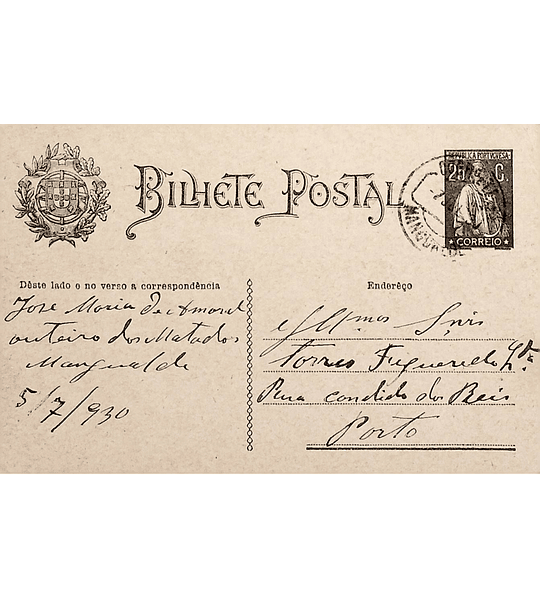 BILHETE POSTAL
REPUBLICA PORTUGUESA
25 C.
CORREIO
CORREIO
MANGUALDE
Dêste lado e no verso a correspondência
Endereço
José Maria de Amaral
outeiro dos Matados
Mangualde
5/7/930
Illmos Snrs
Torres Figueredo Lda
Rua candido dos Reis
Porto